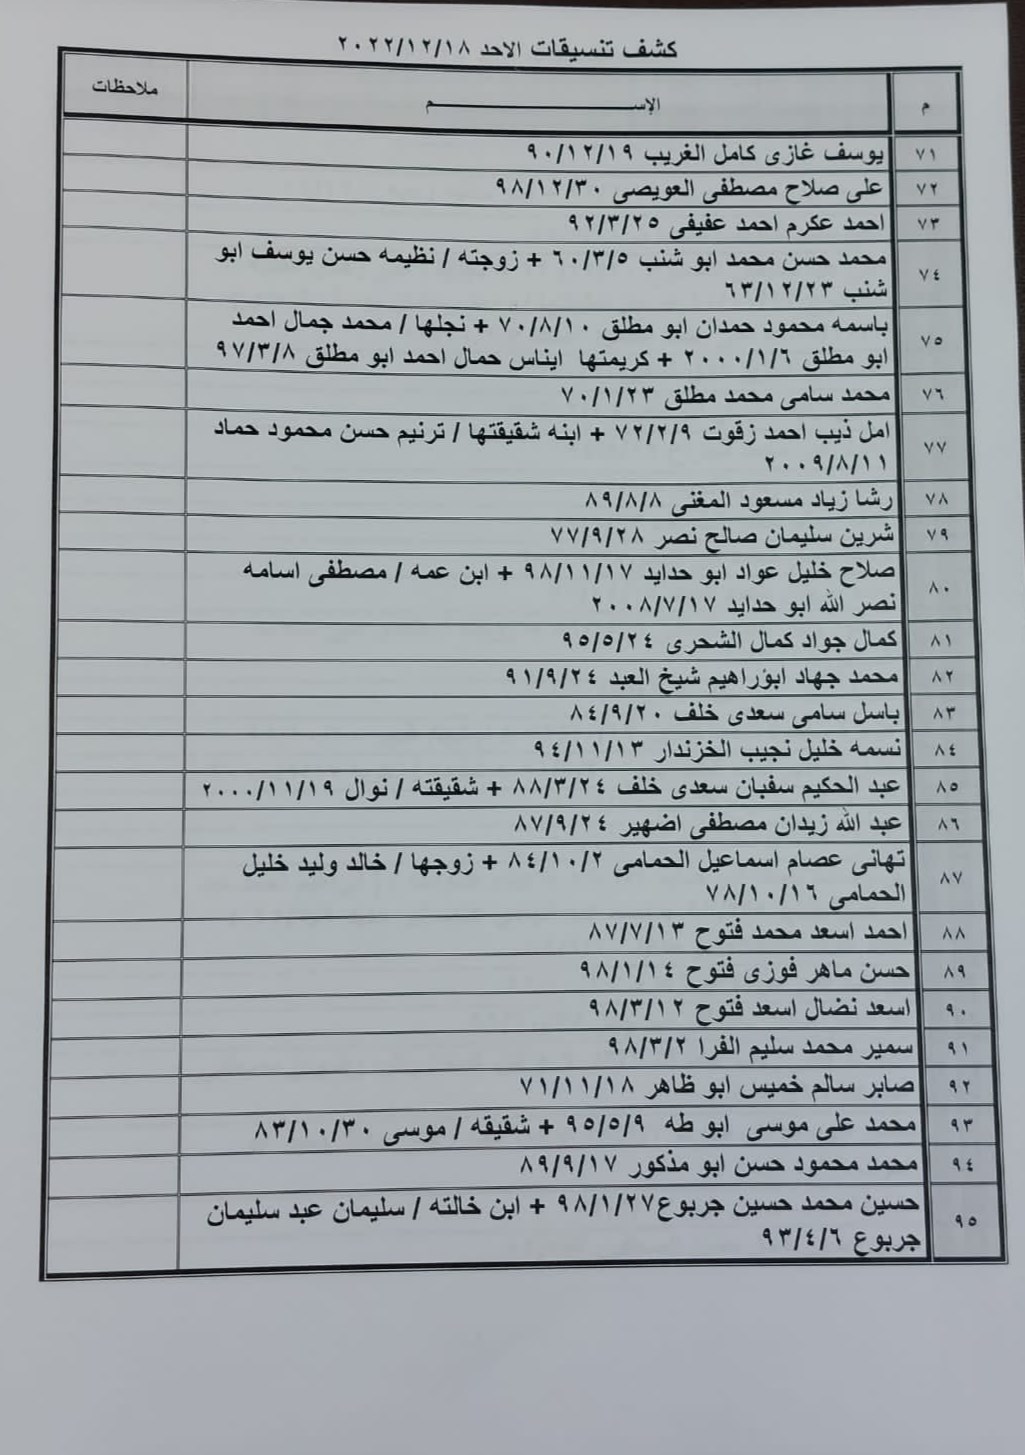 كشف تنسيقات الاحد ٢٠٢٢/١٢/١٨
م الإســـــــــم ملاحظات
٧١ يوسف غازى كامل الغريب ٩٠/١٢/١٩
٧٢ على صلاح مصطفى العويصى ٩٨/١٢/٣٠
٧٣ احمد عكرم احمد عفيفى ٩٢/٣/٢٥
٧٤ محمد حسن محمد ابو شنب ٦٠/٣/٥ + زوجته / نظيمه حسن يوسف ابو
شنب ٦٣/١٢/٢٣
٧٥ باسمه محمود حمدان ابو مطلق ٧٠/٨/١٠ + نجلها / محمد جمال احمد
ابو مطلق ٢٠٠٠/١/٦ + كريمتها ايناس حمال احمد ابو مطلق ٩٧/٣/٨
٧٦ محمد سامى محمد مطلق ٧٠/١/٢٣
٧٧ امل ذيب احمد زقوت ٧٢/٢/٩ + ابنه شقيقتها / ترنيم حسن محمود حماد
٢٠٠٩/٨/١١
٧٨ رشا زياد مسعود المغنى ٨٩/٨/٨
٧٩ شرين سليمان صالح نصر ٧٧/٩/٢٨
٨٠ صلاح خليل عواد ابو حدايد ٩٨/١١/١٧ + ابن عمه / مصطفى اسامه
نصر الله ابو حدايد ٢٠٠٨/٧/١٧
٨١ كمال جواد كمال الشحرى ٩٥/٥/٢٤
٨٢ محمد جهاد ابؤراهيم شيخ العبد ٩١/٩/٢٤
٨٣ باسل سامى سعدى خلف ٨٤/٩/٢٠
٨٤ نسمه خليل نجيب الخزندار ٩٤/١١/١٣
٨٥ عبد الحكيم سفبان سعدى خلف ٨٨/٣/٢٤ + شقيقته / نوال ٢٠٠٠/١١/١٩
٨٦ عبد الله زيدان مصطفى اضهير ٨٧/٩/٢٤
٨٧ تهانى عصام اسماعيل الحمامى ٨٤/١٠/٢ + زوجها / خالد وليد خليل
الحمامى ٧٨/١٠/١٦
٨٨ احمد اسعد محمد فتوح ٨٧/٧/١٣
٨٩ حسن ماهر فوزى فتوح ٩٨/١/١٤
٩٠ اسعد نضال اسعد فتوح ٩٨/٣/١٢
٩١ سمير محمد سليم الفرا ٩٨/٣/٢
٩٢ صابر سالم خميس ابو ظاهر ٧١/١١/١٨
٩٣ محمد على موسى ابو طه ٩٥/٥/٩ + شقيقه / موسى ٨٣/١٠/٣٠
٩٤ محمد محمود حسن ابو مذكور ٨٩/٩/١٧
٩٥ حسين محمد حسين جربوع٩٨/١/٢٧ + ابن خالته / سليمان عبد سليمان
جربوع ٩٣/٤/٦